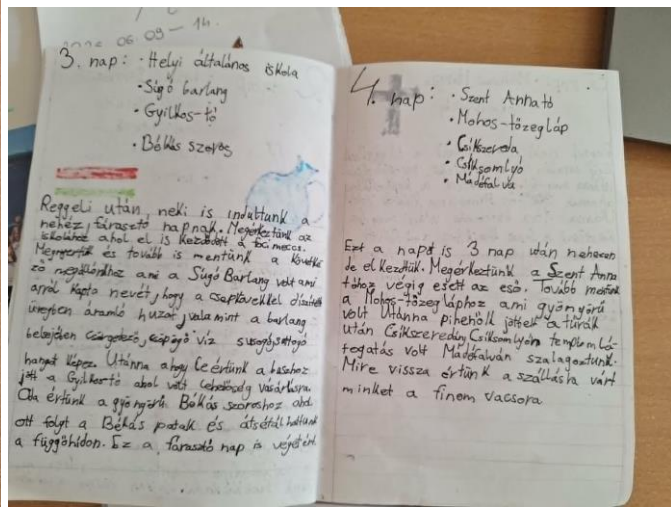 06.09 - 14.
3. nap: • Helyi általános iskola
• Súgó barlang
• Gyilkos-tó
• Békás szoros
Reggeli után neki is indultunk a
nehéz, fárasztó napnak. Megérkeztünk az
iskolához ahol el is kezdődött a foci meccs.
Megnyertük és tovább is mentünk a követke
ző megállónkhoz ami a Súgó Barlang volt ami
arról kapta nevét, hogy a cseppkövekkel díszített
üregben áramló huzat, valamint a barlang
belsejében csörgedező, csöpögő víz suttogó
hangot képez. Utánna ahogy leértünk a buszhoz
jött a Gyilkostó ahol volt lehetőség vásárlásra.
Oda értünk a gyönyörű Békás szoroshoz ahol
ott folyt a Békás patak és átsétálhattunk
a függőhídon. Ez a fárasztó nap is végetért
4. nap: • Szent Anna tó
• Mohos-tőzegláp
• Csíkszereda
• Csíksomlyó
• Mádéfalva
Ezt a napot is 3 nap után nehezen
de elkezdtük. Megérkeztünk a Szent Anna
tóhoz végig esett az eső. Tovább mentünk
a Mohos-tőzegláphoz ami gyönyörű
volt Utánna pihenők jöttek a túrák
után Csíkszeredán Csíksomlyón templom lá-
togatás volt Mádéfalván szalagoztunk.
Mire vissza értünk a szállásra várt
minket a finom vacsora